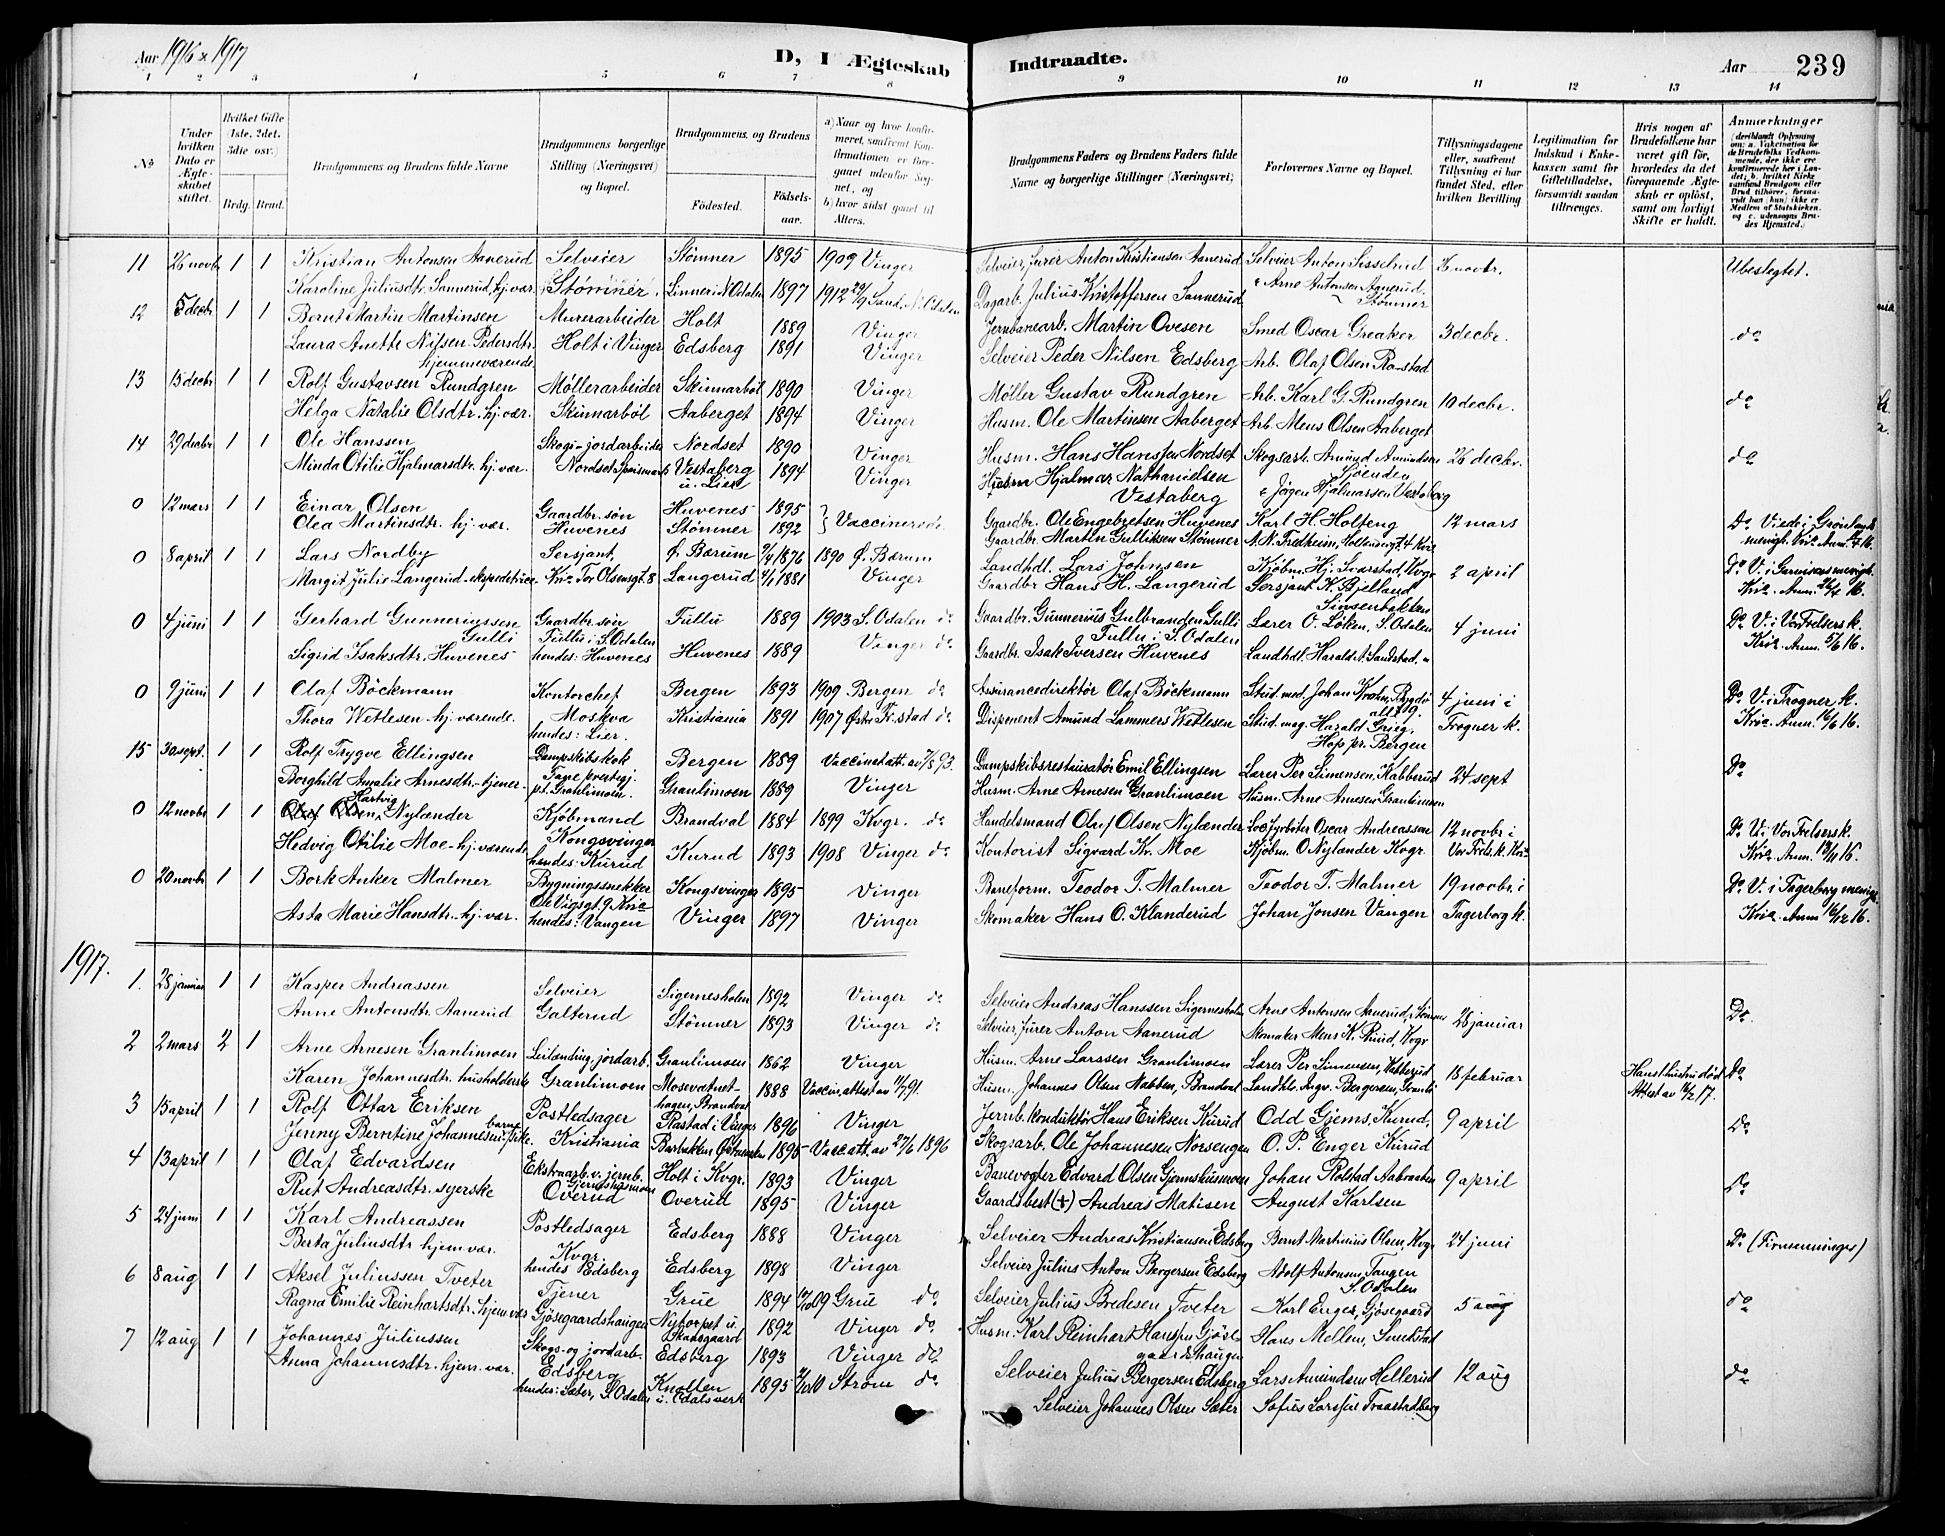 Aar 1916 & 1917 D, I Ægteskab Indtraadte. Aar 239
1 2 3 4 5 6 7 8 9 10 11 12 13 14
No
Under hvilken Dato er Ægteskabet stiftet.
Hvilket Gifte (1ste, 2det, 3die osv.)
Brdg. Brud.
Brudgommens og Brudens fulde Navne
Brudgommens borgerlige Stilling (Næringsvei) og Bopæl.
Brudgommens og Brudens
Fødested. Fødselsaar.
a) Naar og hvor konfirmeret, saafremt Konfirmationen er foregaaet udenfor Sognet, og
b) hvor sidst gaaet til Alters.
Brudgommens Faders og Brudens Faders fulde Navne og borgerlige Stillinger (Næringsvei)
Forlovernes Navne og Bopæl.
Tillysningsdagene eller, saafremt Tillysning ei har fundet Sted, efter hvilken Bevilling
Legitimation for Indskud i Enkekassen samt for Giftetilladelse, forsaavidt saadan tiltrænges.
Hvis nogen af Brudefolkene har været gift før, hvorledes da det foregaaende Ægteskab er opløst, samt om lovligt Skifte er holdt.
Anmærkninger
11 26 novbr. 1 1 Kristian Antonsen Aanerud Selveier Stømner 1895 1909 Vinger Selveier, furer Anton Kristiansen Aanerud Selveier Anton Sisselrud 26 novbr. Ubeslegtet.
Karoline Juliusdtr. Sannerud, hj. vær. Stømner Linner i N. Odalen 1897 1912 29/9 Sand i N. Odalen Dagarb. Julius Kristoffersen Sannerud & Arne Antonsen Aanerud. Stømner
12 5 decbr 1 1 Bernt Martin Martinsen Murerarbeider Holt 1889 Vinger Jernbanearb. Martin Ovesen Smed Oscar Greaker 3 decbr. do
Laura Anette Nilsen Pedersdtr. hjemmeværende Holt i Vinger Edsberg 1891 Vinger Selveier Peder Nilsen Edsberg Arb. Olaf Olsen Rastad
13 15 decbr 1 1 Rolf Gustavsen Rundgren Møllerarbeider Skinnarböl 1890 Vinger Møller Gustav Rundgren Arb. Karl G. Rundgren 10 decbr. do
Helga Natalie Olsdtr. hj. vær. Skinnarböl Aaberget 1894 Vinger Husm. Ole Martinsen Aaberget Arb. Mens Olsen Aaberget
14 29 decbr 1 1 Ole Hanssen Skogs- jordarbeider Nordset 1890 Vinger Husm. Hans Hanssen Nordset Skogsarb. Amund Amundsen 26 decbr. do
Minda Otilie Hjalmarsdtr. hj. vær. Vestaberg u. Lier 1894 Vinger Husm Hjalmar Nathanielsen Vestaberg Sjøenden & Jørgen Hjalmarsen Vestaberg
0 12 mars 1 1 Einar Olsen Gaardbr. søn Huvenes 1895 } Vaccinerede Gaardbr. Ole Engebretsen Huvenes Karl H. Holteng 12 mars Do Viede i Grønlands
Olea Martinsdtr. hj. vær. Huvenes Stømner 1892 Gaardbr. Martin Gulliksen Stømner
0 8 april 1 1 Lars Nordby Sersjant, Ø. Bærum 1876 1890 Ø. Bærum Landhdl. Lars Johnsen 2 april
Margit Julie Langerud, ekspeditrice Kria Tor Olsensgt. 8 Langerud 1881 Vinger Gaardbr Hans H. Langerud Sersjant K. Bjelland Sinsenbakken
0 4 juni 1 1 Gerhard Gunneriussen Gulli Gaardbr. søn Fullu 1889 1903 S. Odalen do Gaardbr. Gunnerius Gulbrandsen Gulli Fullu i S. Odalen Lærer O. Löken, S. Odalen 4 juni Do V. i Vor Frelsers k.
Sigrid Isaksdtr. Huvenes Fullu i S. Odalen hendes: Huvenes Huvenes 1889 Vinger do Gaardbr. Isak Iversen Huvenes Landhdl. Harald A. Sandstad Kria. Anm. 5/6 16.
0 9 juni 1 1 Olaf Böckmann Kontorchef Bergen 1893 1909 Bergen do Assurancedirektör Olaf Böckmann Stud. med. Johan Krohn, Bygdø allé 9. 4 juni i Do V. i Frogner k.
Thora Wetlesen hj. værende. Moskva hendes: Lier. Kristiania 1891 1907 Østre Fr. stad do Disponent Amund Lammers Wetlesen Stud. mag. Harald Grieg, Hop pr. Bergen Frogner k. Kria. Anm. 16/6 16.
15 30 sept. 1 1 Rolf Trygve Ellingsen Dampskibskok Bergen 1889 Vaccinat. att. av Dampskibsrestauratör Emil Ellingsen Lærer Per Simensen, Kabberud 24 sept Do
Borghild Amalie Arnesdtr. tjener p.t. Granlimoen. Granlimoen 1889 Vinger Husm. Arne Arnesen Granlimoen Husm. Arne Arnesen Granlimoen
0 12 novbr 1 1 Olaf Olsen Hartvig Nylænder Kjöbmand Brandval 1884 1899 Kvgr. do Handelsmand Oluf Olsen Nylænder Oscar Andreassen 12 novbr i Do V. i Vor Frelsers k.
Hedvig Otilie Moe hj. værende Kongsvinger hendes: Kurud Kurud 1893 1908 Vinger do Kontorist Sigvard Kr. Moe Kjöbm. O. Nylander Kvgr. Vor Frels. k. Kria. Kria. Anm. 13/11 16.
0 20 novbr 1 1 Bork Anker Malmer Bygningssnekker Kongsvinger 1895 Vinger Baneform. Teodor T. Malmer Teodor T. Malmer 19 novbr. i Do V. i Fagerborg menigh.
Asta Marie Hansdtr. hj. vær. Ole Vigsgt. 9 Kria hendes: Vangen Vinger 1897 Vinger Skomaker Hans O. Klanderud Johan Jonsen Vangen Fagerborg k. Kria. Anm 16/12 16.
1917.
1. 28 januar 1 1 Kasper Andreassen Selveier Sigernesholm 1892 Vinger do Selveier Andreas Hanssen Sigernesholm Arne Antonsen Aanerud, Stømner 28 januar Do.
Anne Antonsdtr. Aanerud Galterud Stømner 1893 Vinger do Selveier, furer Anton Aanerud Skomaker Mens K. Ruud, Kvgr
2 2 mars 2 1 Arne Arnesen Granlimoen Leilending, jordarb. Granlimoen 1862 Vinger Husm. Arne Larssen Granlimoen Lærer Per Simensen, Kabberud 18 februar Hans hustru død Do
Karen Johannesdtr. husholderske Granlimoen Mosevætnethagen, Brandval 1888 Vaccin. attest av 11/7 91. Husm. Johannes Olsen Nabben, Brandval Landhdl. Ingv. Bergersen, Granli Attest av 14/2 17.
3 15 april 1 1 Rolf Ottar Eriksen Postledsager Rastad i Vinger 1896 Vinger Jernb. konduktör Hans Eriksen Kurud Odd Gjems, Kurud, 9 april Do
Jenny Berntine Johannesen, barnepike. Kristiania 1895 Vacc. att. av 27/6 1896 Skogsarb. Ole Johannesen Norsengen O. P. Enger Kurud
4 13 april 1 1 Olaf Edvardsen Ekstraarb. v. jernb. Holt i Kvgr. 1893 Vinger Banevogter Edvard Olsen Gjemshusmoen Johan Rolstad Aabraaten 9 april Do
Rut Andreasdtr. syerske Gjemshusmoen Overud Overud 1895 Vinger Gaardsbest (+) Andreas Matisen August Karlsen
5 24 juni 1 1 Karl Andreassen Postledsager Edsberg 1888 Vinger Selveier Andreas Kristiansen Edsberg Bernt Martinius Olsen, Kvgr 24 juni Do (Firmenninger)
Berta Juliusdtr hjem. vær. Kvgr. hendes Edsberg Edsberg 1898 Vinger Selveier Julius Anton Bergersen Edsberg Adolf Antonsen, Tangen S. Odalen
6 8 aug 1 1 Aksel Juliussen Tveter Tjener Grue 1894 Grue do Selveier Julius Bredesen Tveter Karl Enger, Gjøsegaard 5 aug do
Ragna Emilie Reinhartsdtr. hjem. vær Gjøsegaardshaugen 1892 Vinger do. Husm. Karl Reinhart Hanssen Gjøsegaardshaugen Hans Mellem, Snekstad
7 12 aug 1 1 Johannes Juliussen Skogs- og jordarb. Edsberg 1893 Vinger do Selveier Julius Bergersen Edsberg Lars Amundsen Hellerud 12 aug do
Anna Johannesdtr. hjem. vær. Edsberg hendes: Sæter, S. Odalen Knollen u. Odalsverk 1895 Strøm do Selveier Johannes Olsen Sæter Sofus Larssen Fraastadberg